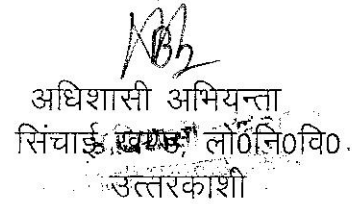 अधिशासी अभियन्ता
सिंचाई खण्ड, लो0नि0वि0.
उत्तरकाशी